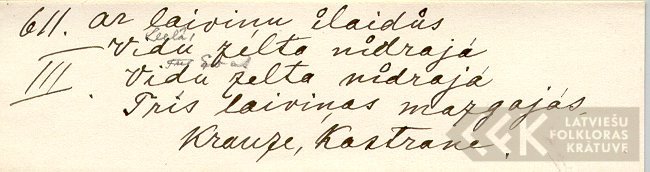 611. ar laiviņu īlaidůs
Vidú zélta nidrajá
III. Vidú zelta nidrajá
Tris laiviņas mazgajás
Krauze, Kastrane.
LATVIEŠU
FOLKLORAS
KRĀTUVE